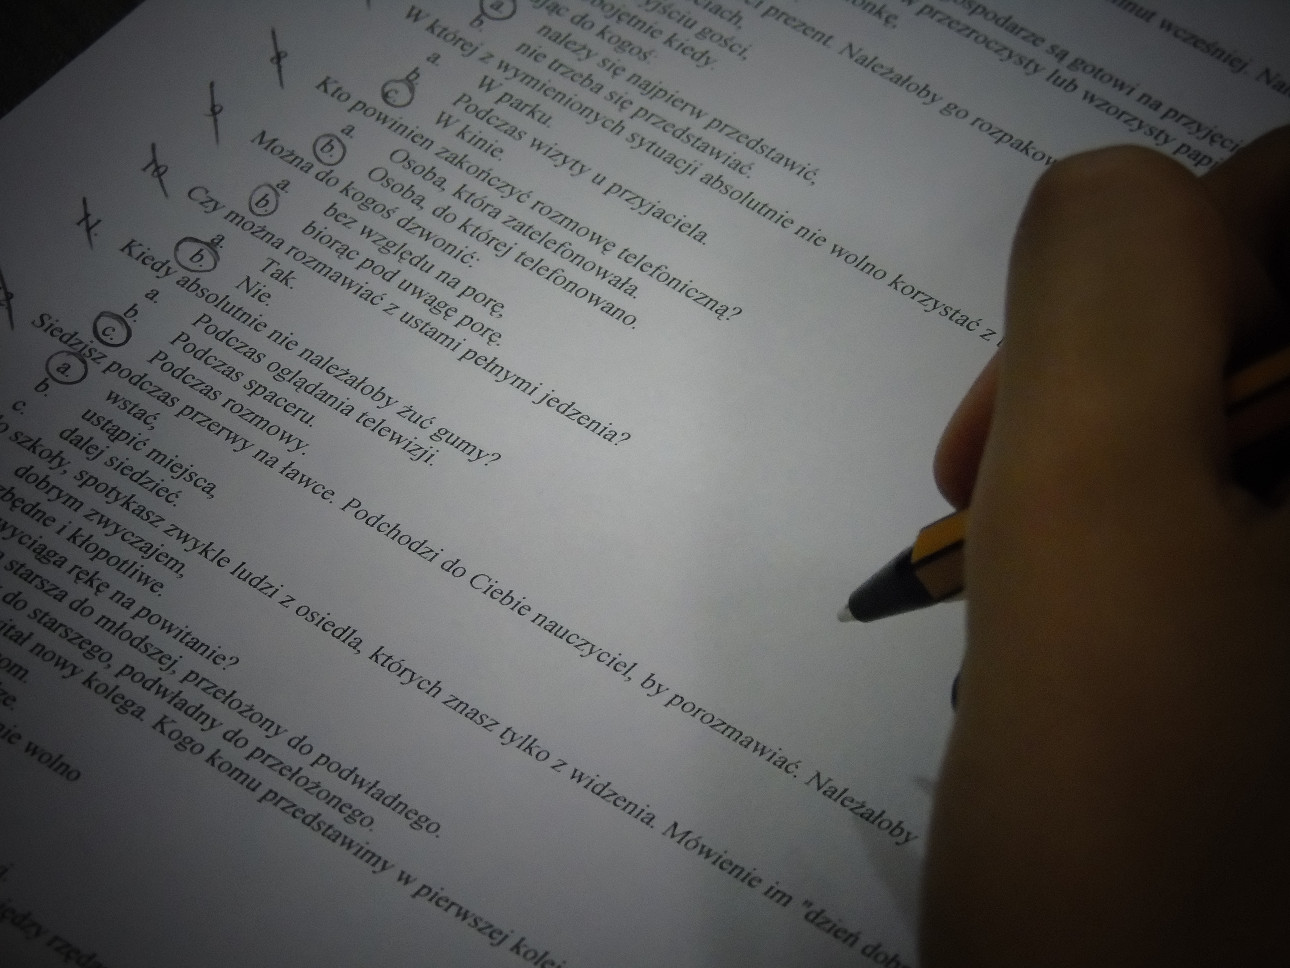 minut wcześniej.
gospodarze są gotowi na przyjęci
w przezroczysty lub wzorzysty papi
prezent. Należałoby go rozpakow
onkę.
ciach,
yjściu gości,
bojętnie kiedy.
jąc do kogoś:
a. należy się najpierw przedstawić,
b. nie trzeba się przedstawiać.
8 W której z wymienionych sytuacji absolutnie nie wolno korzystać z
a. W parku.
b. Podczas wizyty u przyjaciela.
c. W kinie.
9 Kto powinien zakończyć rozmowę telefoniczną?
a. Osoba, która zatelefonowała.
b. Osoba, do której telefonowano.
10 Można do kogoś dzwonić:
a. bez względu na porę,
b. biorąc pod uwagę porę.
11 Czy można rozmawiać z ustami pełnymi jedzenia?
a. Tak.
b. Nie.
Kiedy absolutnie nie należałoby żuć gumy?
a. Podczas oglądania telewizji.
b. Podczas spaceru.
c. Podczas rozmowy.
Siedzisz podczas przerwy na ławce. Podchodzi do Ciebie nauczyciel, by porozmawiać. Należałoby
a. wstać,
b. ustąpić miejsca,
c. dalej siedzieć.
szkoły, spotykasz zwykle ludzi z osiedla, których znasz tylko z widzenia. Mówienie im "dzień dob
dobrym zwyczajem,
zbędne i kłopotliwe.
wyciąga rękę na powitanie?
starsza do młodszej, przełożony do podwładnego.
do starszego, podwładny do przełożonego.
itał nowy kolega. Kogo komu przedstawimy w pierwszej kolej
om.
ze.
nie wolno
iędzy rzęd